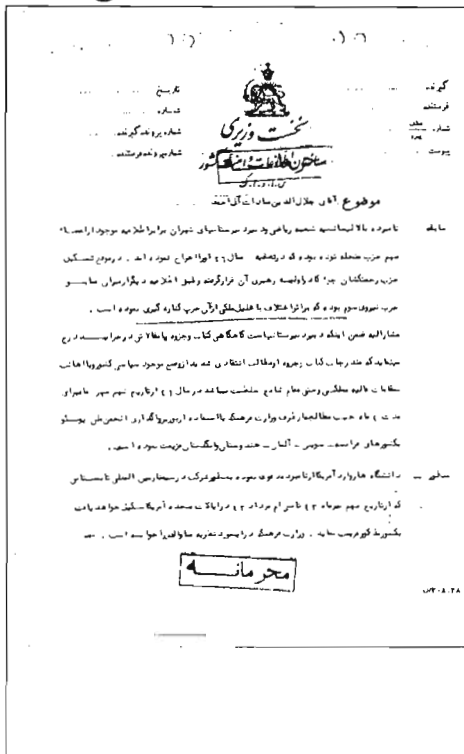 گیرنده
تاریخ
فرستنده
شماره
نخست وزیری
شماره
شماره پرونده گیرنده
پیوست
شماره پرونده فرستنده
سازمان اطلاعات و امنیت کشور
س.ا.و.ا.ک
موضوع آقای جلال‌الدین سادات آل احمد
سابقه نامبرده بالا لیسانسیه شعبه ریاضی و دبیر دبیرستانهای تهران برابر اطلاعیه موجود از اعضاء
مهم حزب منحله توده بوده که در تصفیه سال ۲۶ او را اخراج نموده‌اند . در موقع تشکیل
حزب زحمتکشان جزء کادر اولیه رهبری آن قرار گرفته و طبق اعلامیه دیگر از سران سابق
حزب نیروی سوم بوده که بر اثر اختلاف با خلیل ملکی از آن حزب کناره گیری نموده است .
مشارالیه ضمن اینکه دبیر دبیرستانهاست گاهگاهی کتاب و جزوه یا مقالاتی در جراید درج
مینماید که مندرجات کتاب و جزوه او مطالب انتقادی شدید از وضع موجود سیاسی کشور و با اهانت
بمقامات عالیه مملکتی وحتی مقام شامخ سلطنت میباشد در سال ۴۱ از تاریخ نهم مهر ماه برای
مدت ۴ ماه جهت مطالعه از طرف وزارت فرهنگ با استفاده از بورس واگذاری انجمن ملی یونسکو
بکشورهای فرانسه - سویس - آلمان - هندوستان و انگلستان عزیمت نموده است .
منظور - دانشگاه هاروارد آمریکا از نامبرده دعوت نموده بمنظور شرکت در سمینار بین المللی تابستانی
که از تاریخ نهم تیرماه ۴۳ تا سی ام مرداد ۴۳ در ایالات متحده آمریکا تشکیل خواهد یافت
بکشور مذکور عزیمت نماید . وزارت فرهنگ در اینمورد نظریه ساواک را خواسته است .
محرمانه